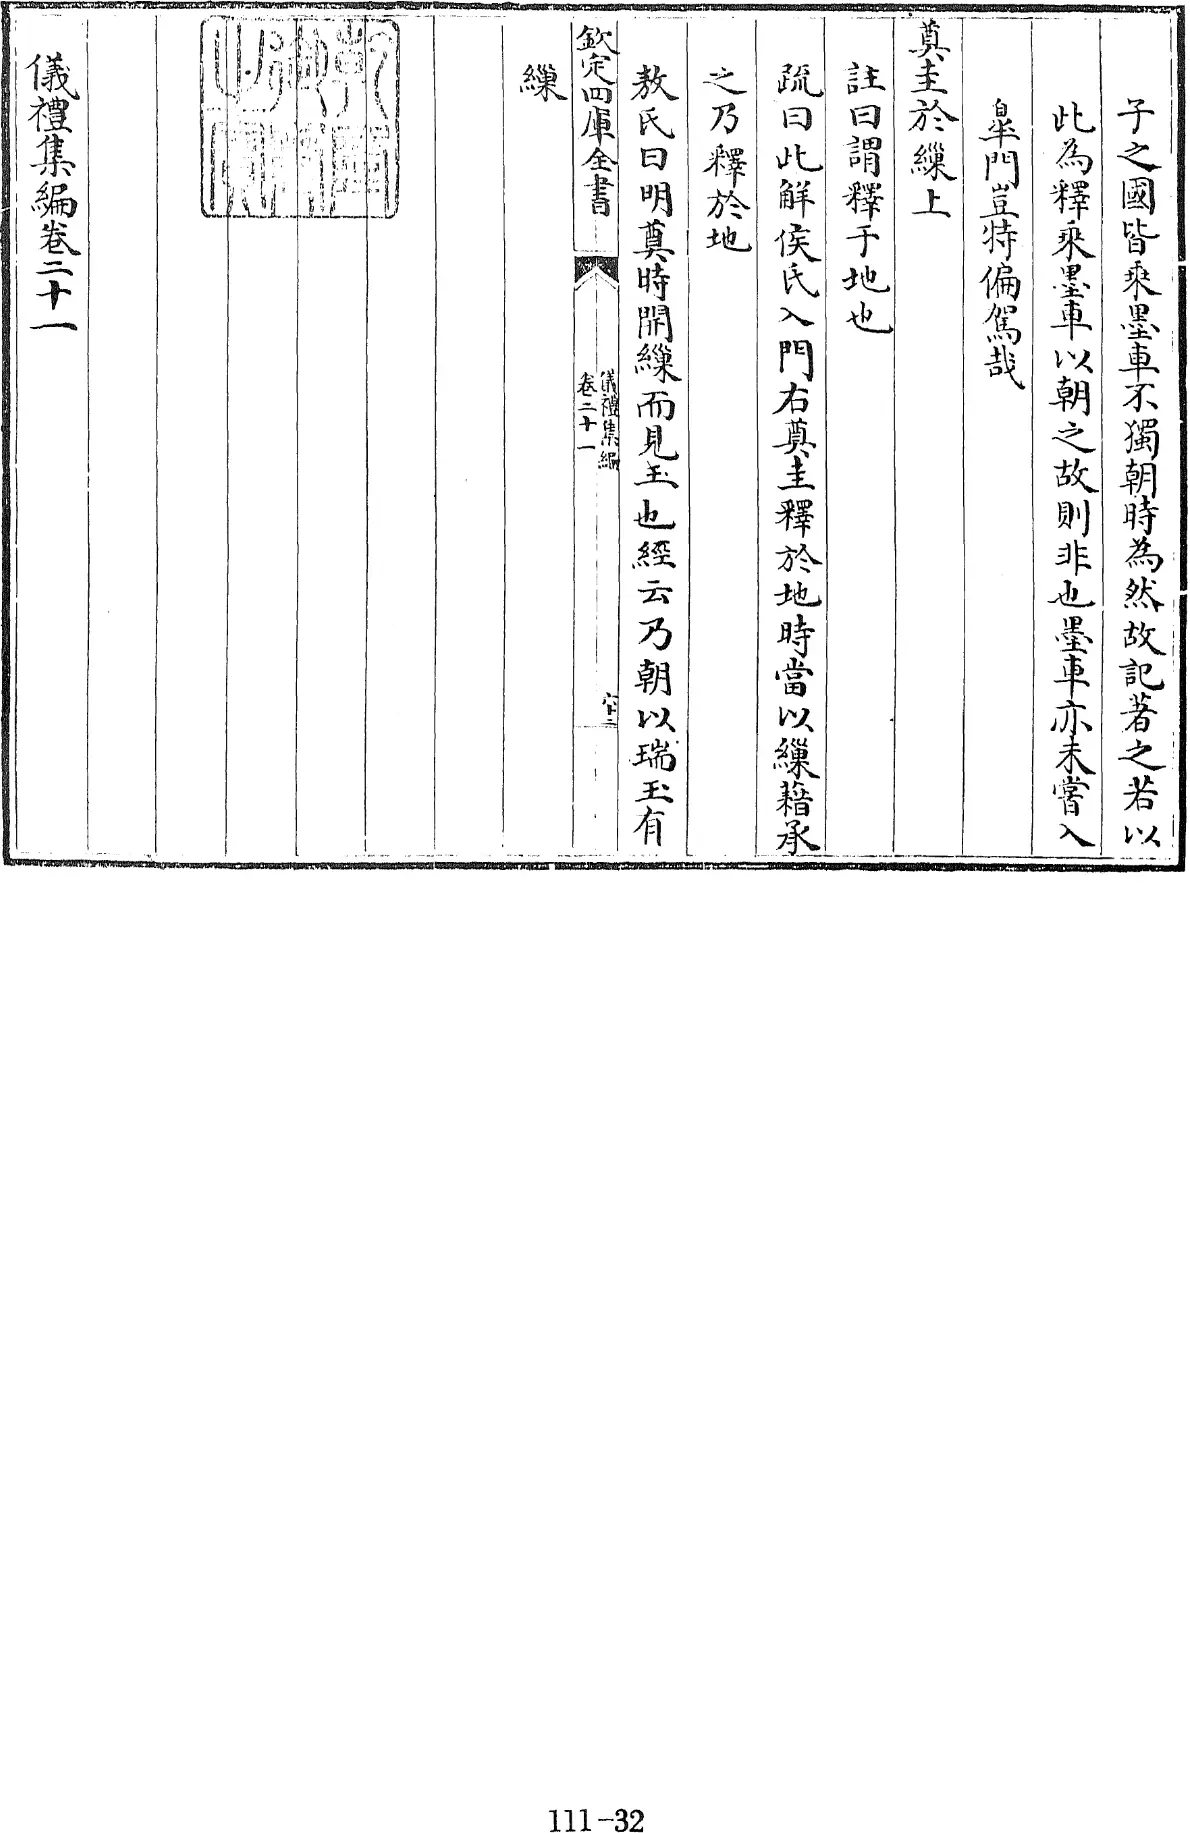 子之國皆乘墨車不獨朝時為然故記著之若以
此為釋乘墨車以朝之故則非也墨車亦未嘗入
皐門豈特偏駕哉
奠圭於繅上
註曰謂釋于地也
疏曰此解侯氏入門右奠圭釋於地時當以繅藉承
之乃釋於地
敖氏曰明奠時開繅而見玉也經云乃朝以瑞玉有
欽定四庫全書
儀禮集編
卷二十一
六十二
繅
儀禮集編卷二十一
111-32